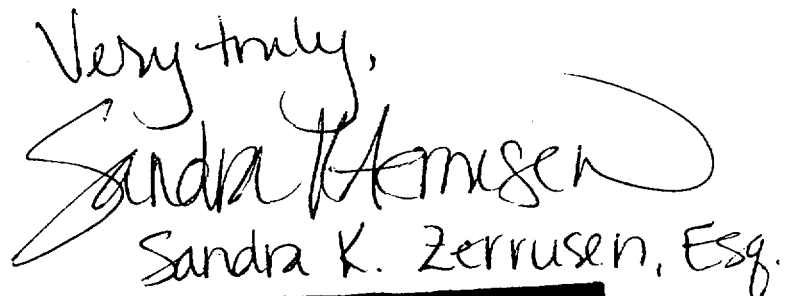 Very truly,
Sandra K Zerrusen
Sandra K. Zerrusen, Esq.